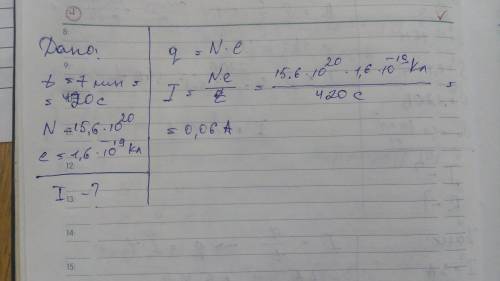 Дано:
t = 7 мин =
= 420 с
N = 15,6·10²⁰
e = 1,6·10⁻¹⁹ Кл
I - ?
q = N·e
I = N·e / t = 15,6·10²⁰ · 1,6·10⁻¹⁹ Кл / 420 с =
= 0,06 А
8
9
12
13
14
15